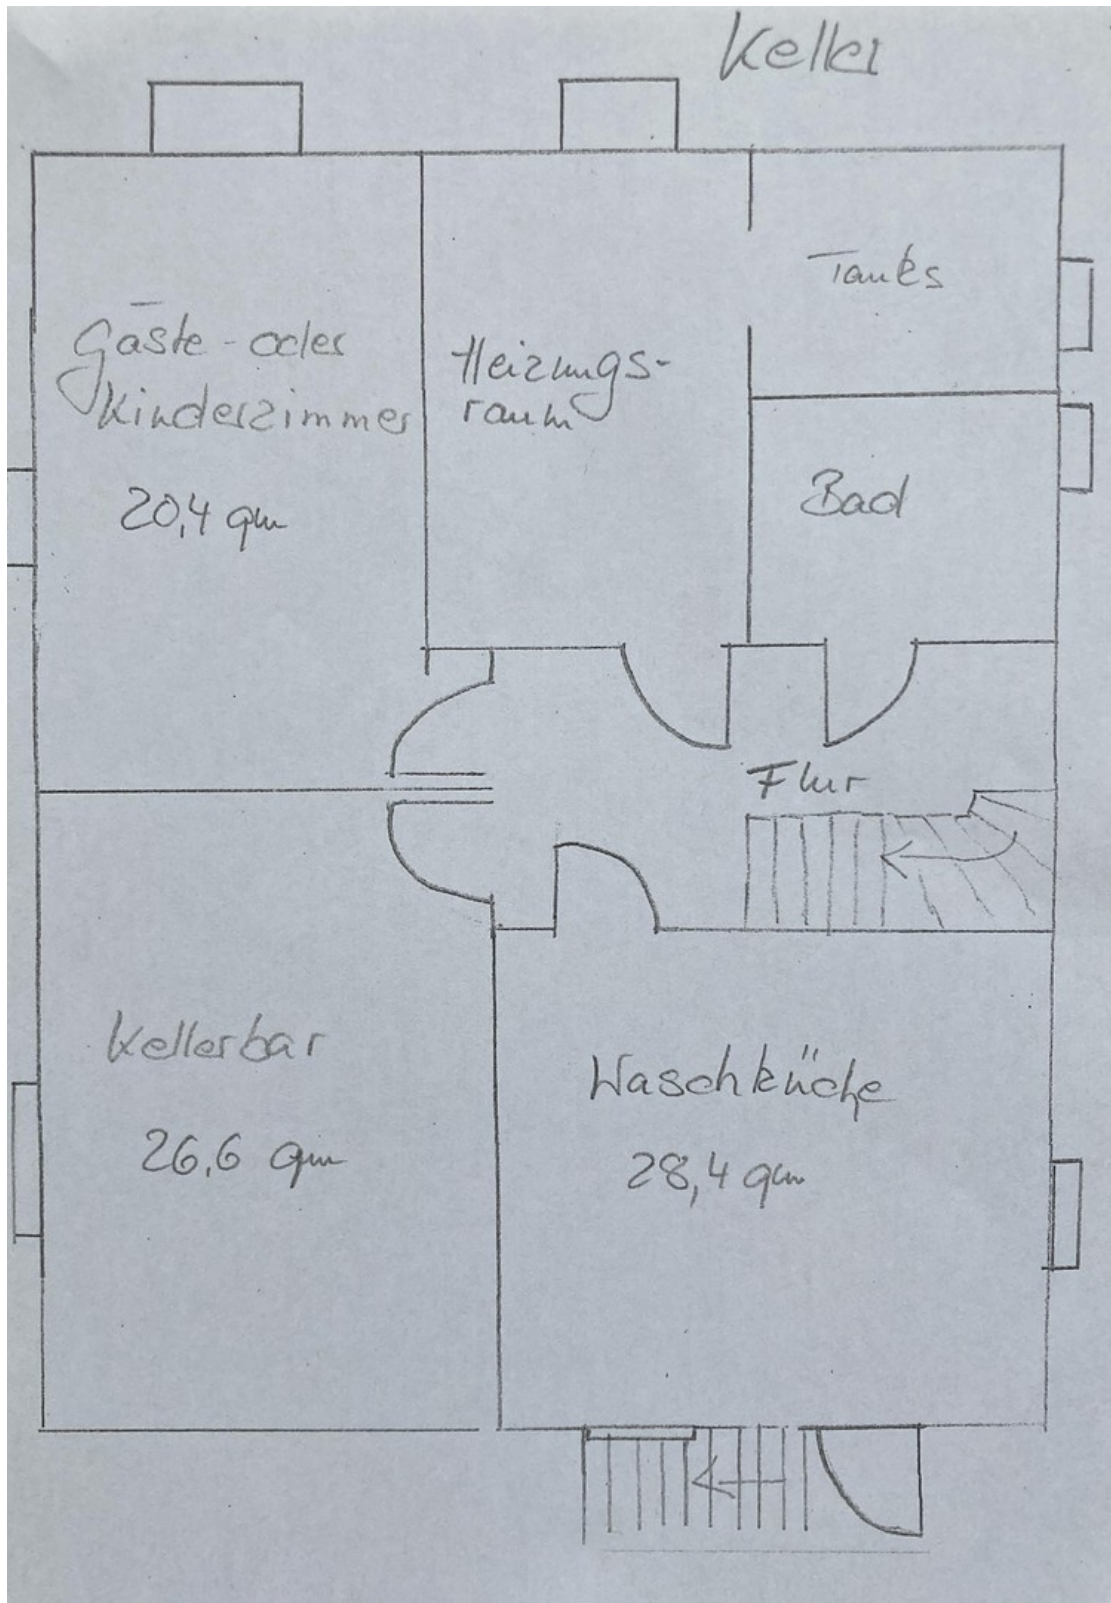 Keller
Tanks
Gäste- oder
Kinderzimmer
20,4 qm
Heizungs-
raum
Bad
Flur
Kellerbar
26,6 qm
Waschküche
28,4 qm